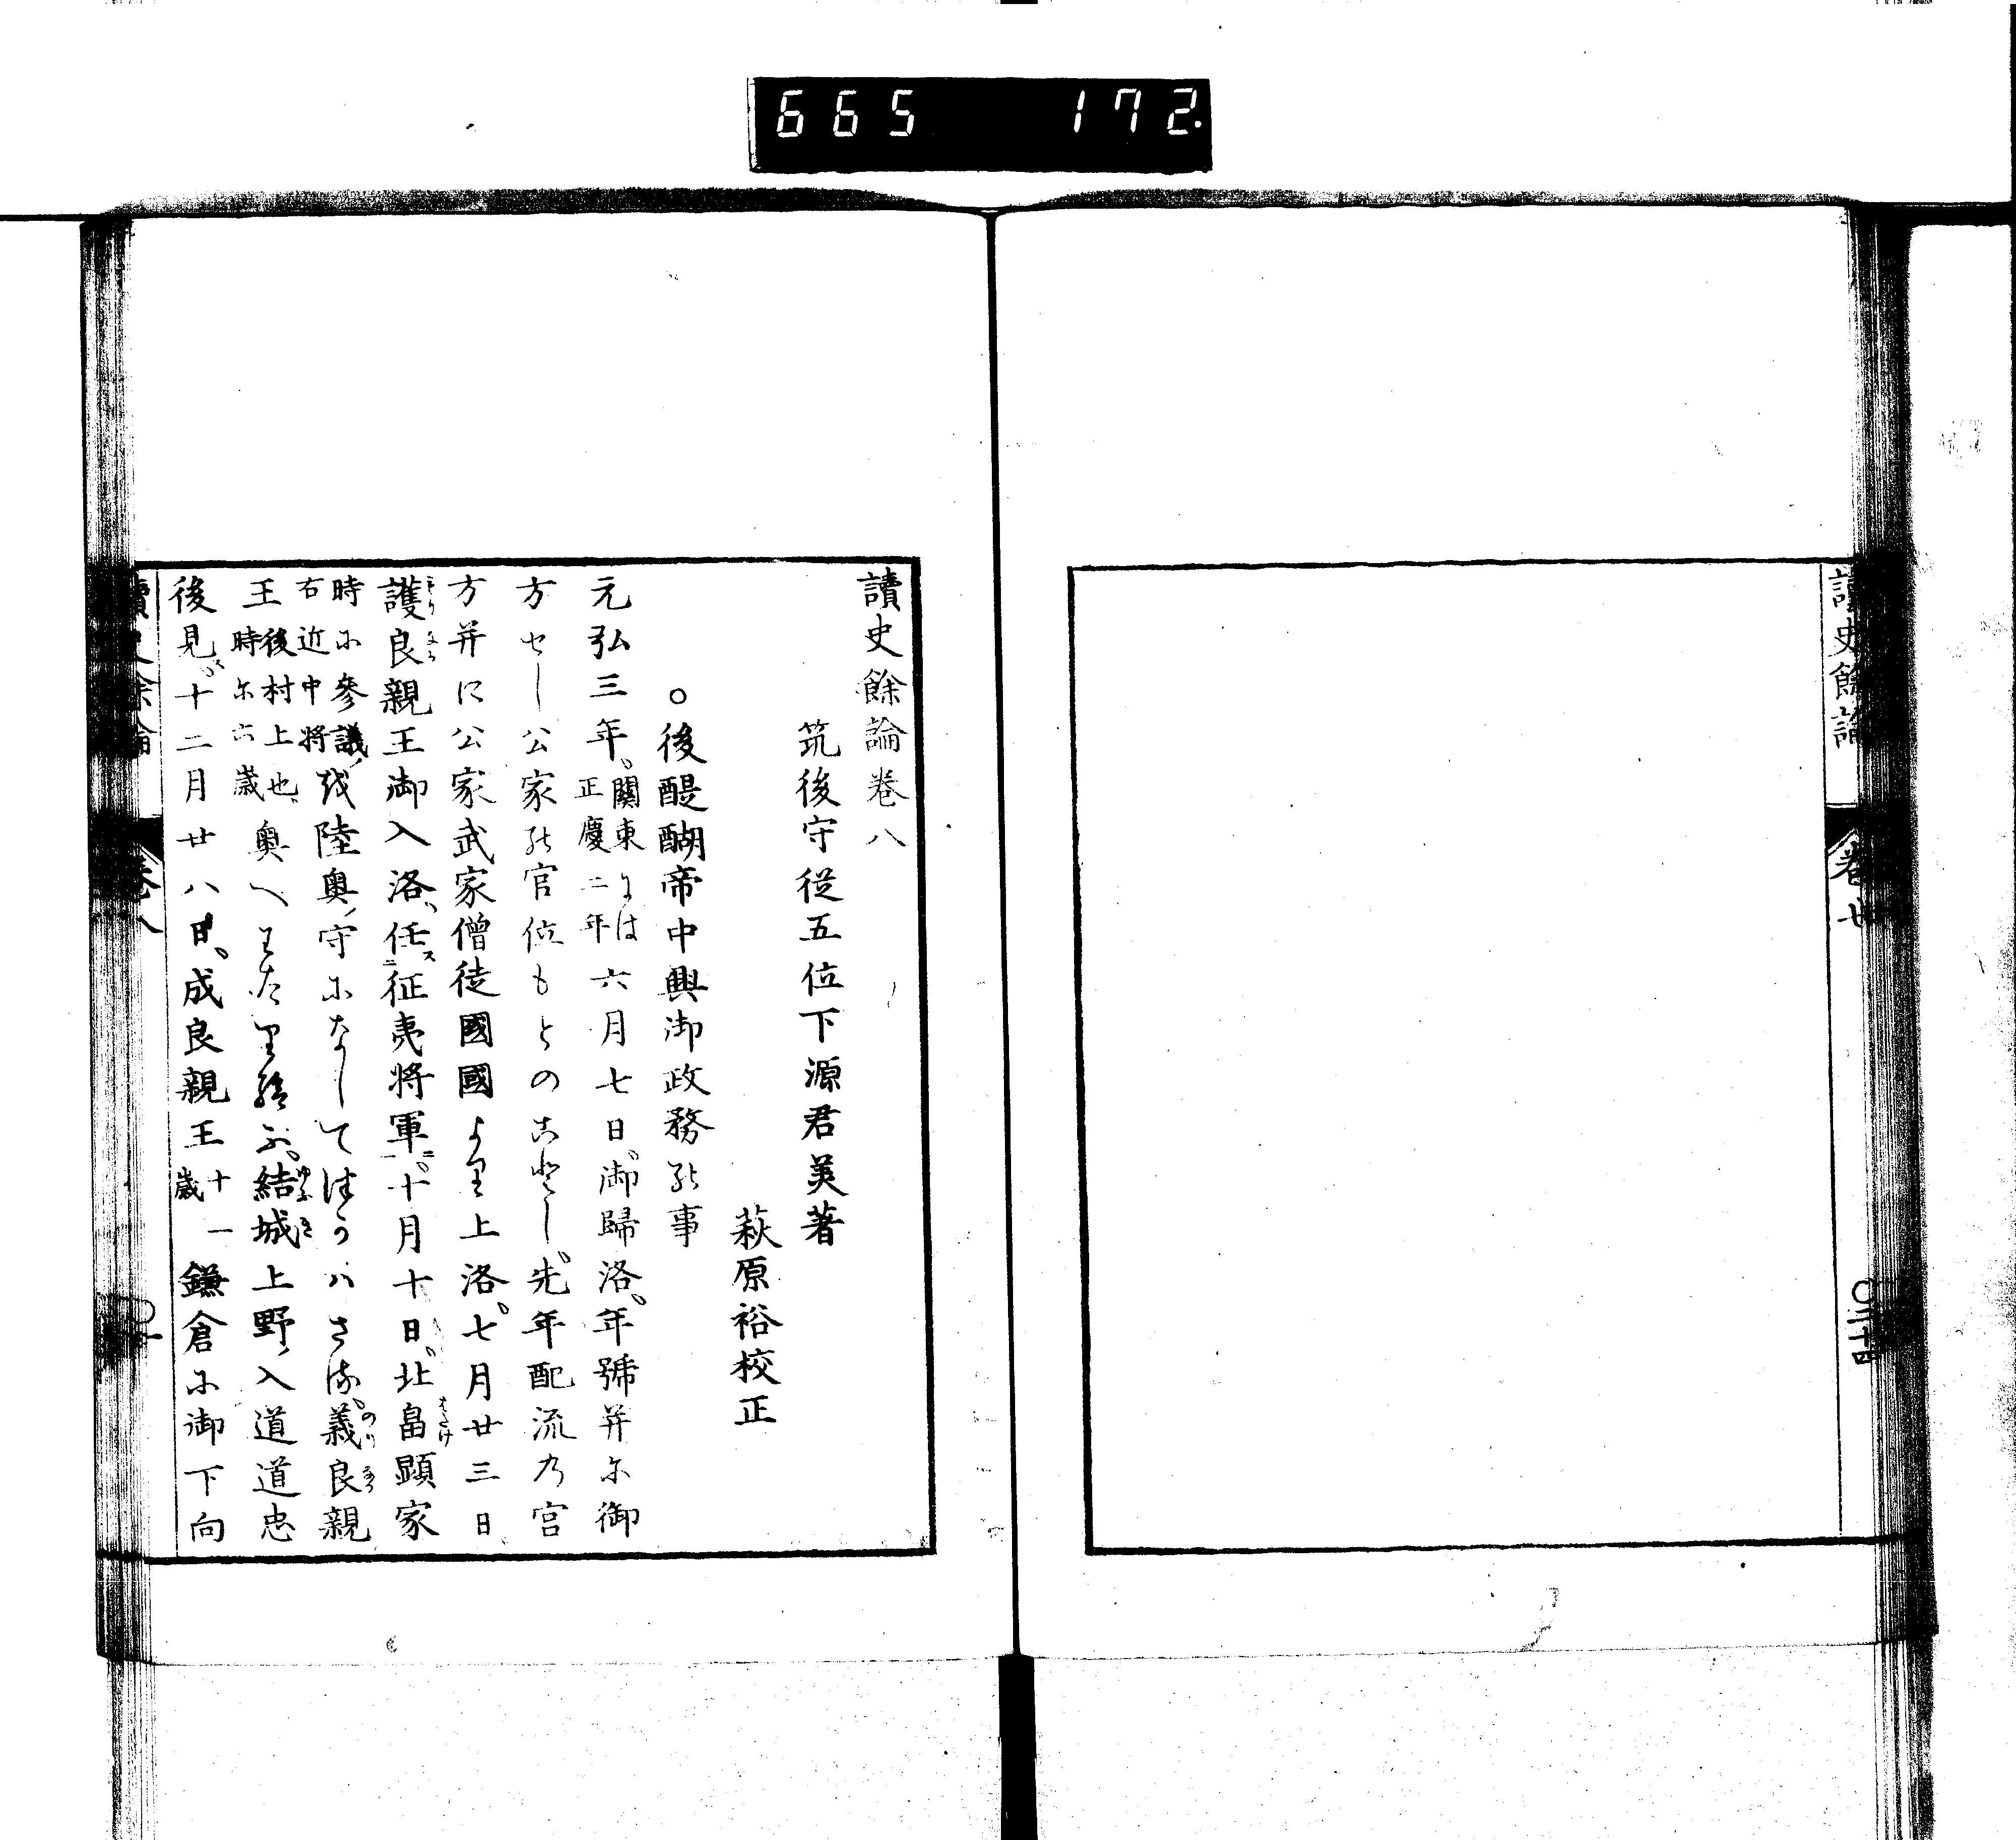 665 172
讀史餘論
卷七
〇二十四
讀史餘論卷八
筑後守從五位下源君美著
萩原裕校正
○後醍醐帝中興御政務の事
元弘三年、關東には正慶二年六月七日、御歸洛、年號并に御
方せし公家の官位もとのごとし、先年配流の宮
方并に公家武家僧徒國國より上洛、七月廿三日
護良親王御入洛、任ス二征夷將軍ニ一、十月十日、北畠顯家
時に參議右近中將を陸奥ノ守になしてつかはさる、義良親
王後村上也、時に六歳奥へくだり給ふ、結城上野ノ入道道忠
後見ス、十二月廿八日、成良親王十一歳鎌倉に御下向
讀史餘論
卷八
〇一